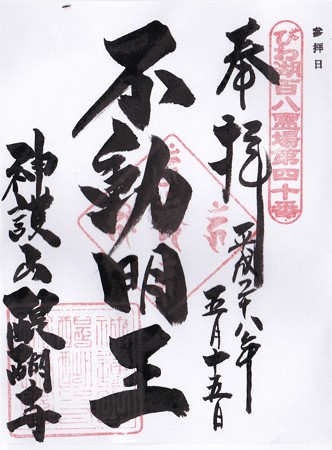 参拝日
びわ湖百八霊場第四十番
奉拝
平成二十八年
五月十五日
不動明王
神護山醍醐寺